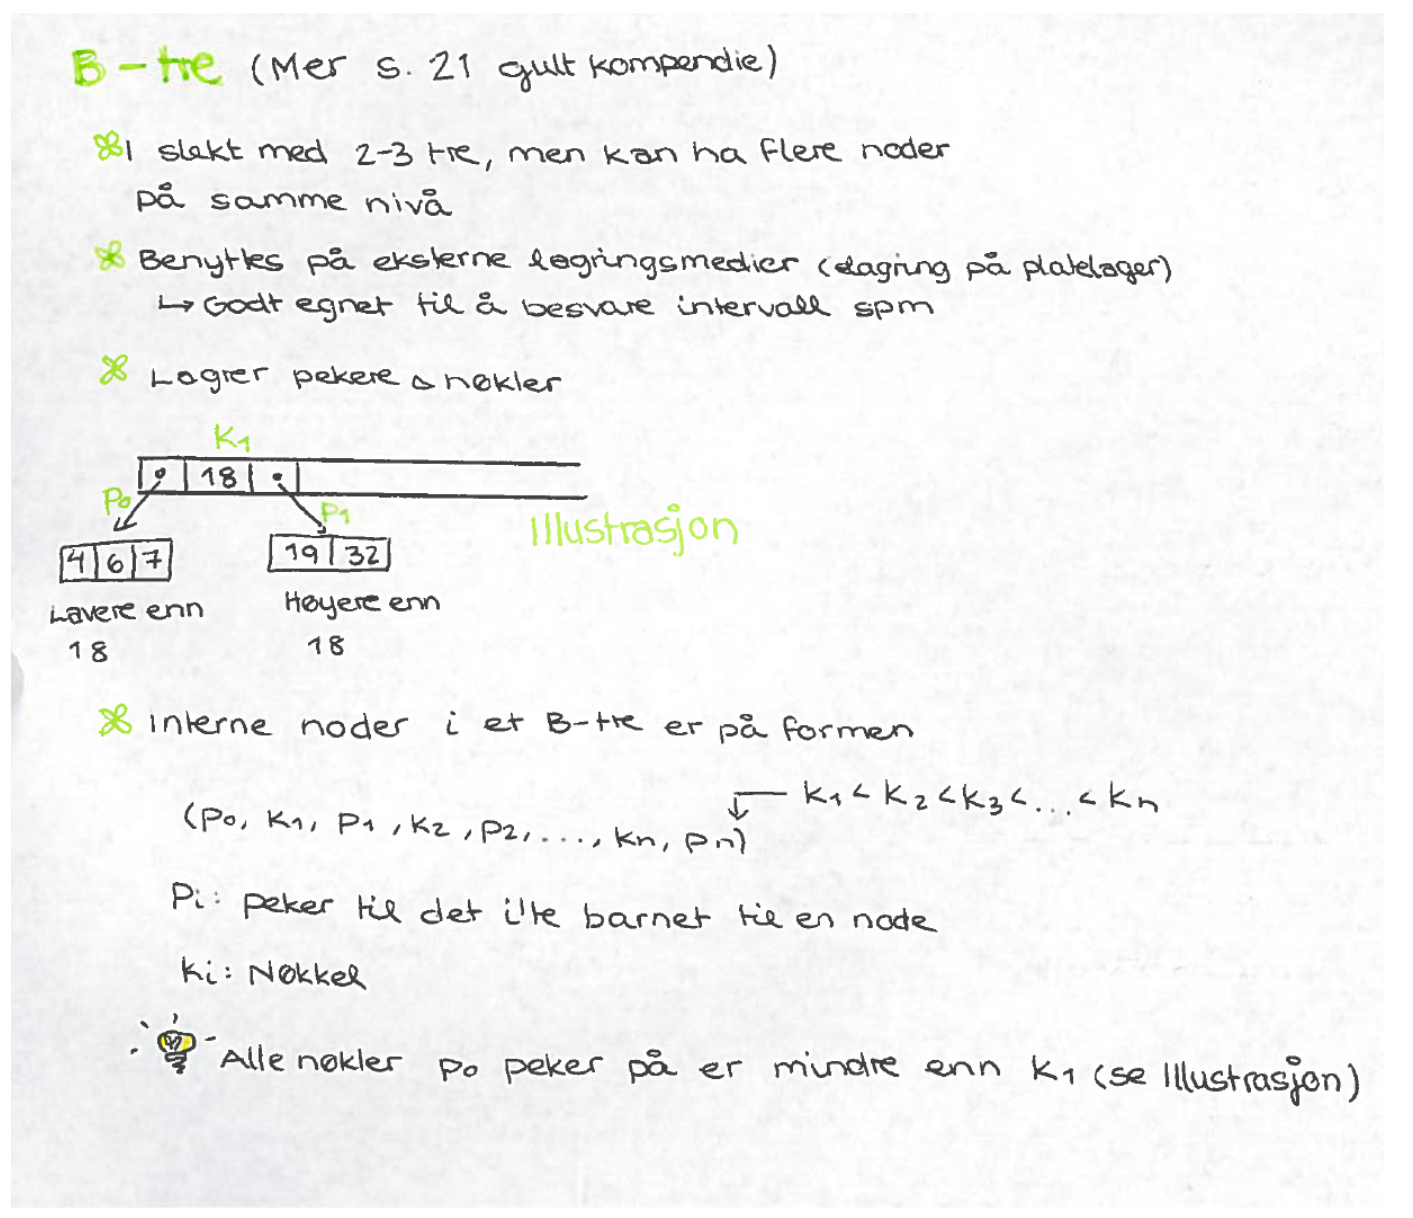 B-tre (Mer s. 21 gult kompendie)
I slekt med 2-3 tre, men kan ha flere noder
på samme nivå
Benyttes på eksterne lagringsmedier (lagring på platelager)
↳ Godt egnet til å besvare intervall spm
Lagrer pekere & nøkler
K1
18
P0
P1
Illustrasjon
4 6 7
19 32
Lavere enn
18
Høyere enn
18
Interne noder i et B-tre er på formen
K1 < K2 < K3 < ... < Kn
(P0, K1, P1, K2, P2, ..., Kn, Pn)
Pi: peker til det i'te barnet til en node
Ki: Nøkkel
Alle nøkler P0 peker på er mindre enn K1 (se Illustrasjon)